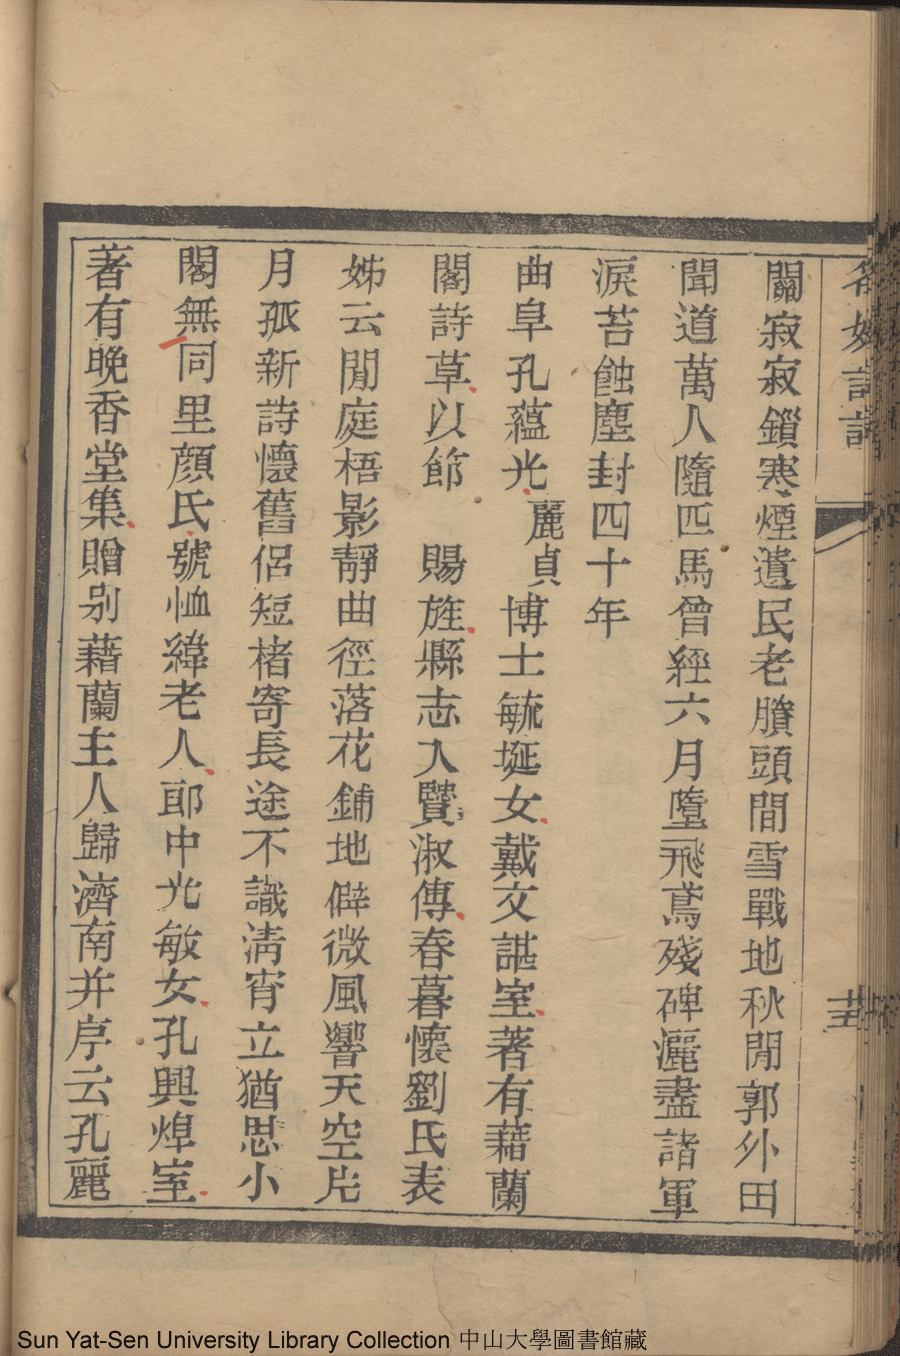 名媛詩話
關寂寂鎖寒煙遺民老賸頭間雪戰地秋閒郭外田
聞道萬人隨匹馬曾經六月墮飛鳶殘碑灑盡諸軍
淚苔蝕塵封四十年
曲阜孔蘊光麗貞博士毓埏女戴文諶室著有藉蘭
閣詩草以節 賜旌縣志入賢淑傳春暮懷劉氏表
姊云閒庭梧影靜曲徑落花鋪地僻微風響天空片
月孤新詩懷舊侶短楮寄長途不識淸宵立猶思小
閣無同里顏氏號恤緯老人郎中光敏女孔興焯室
著有晚香堂集贈別藉蘭主人歸濟南并序云孔麗
Sun Yat-Sen University Library Collection 中山大學圖書館藏